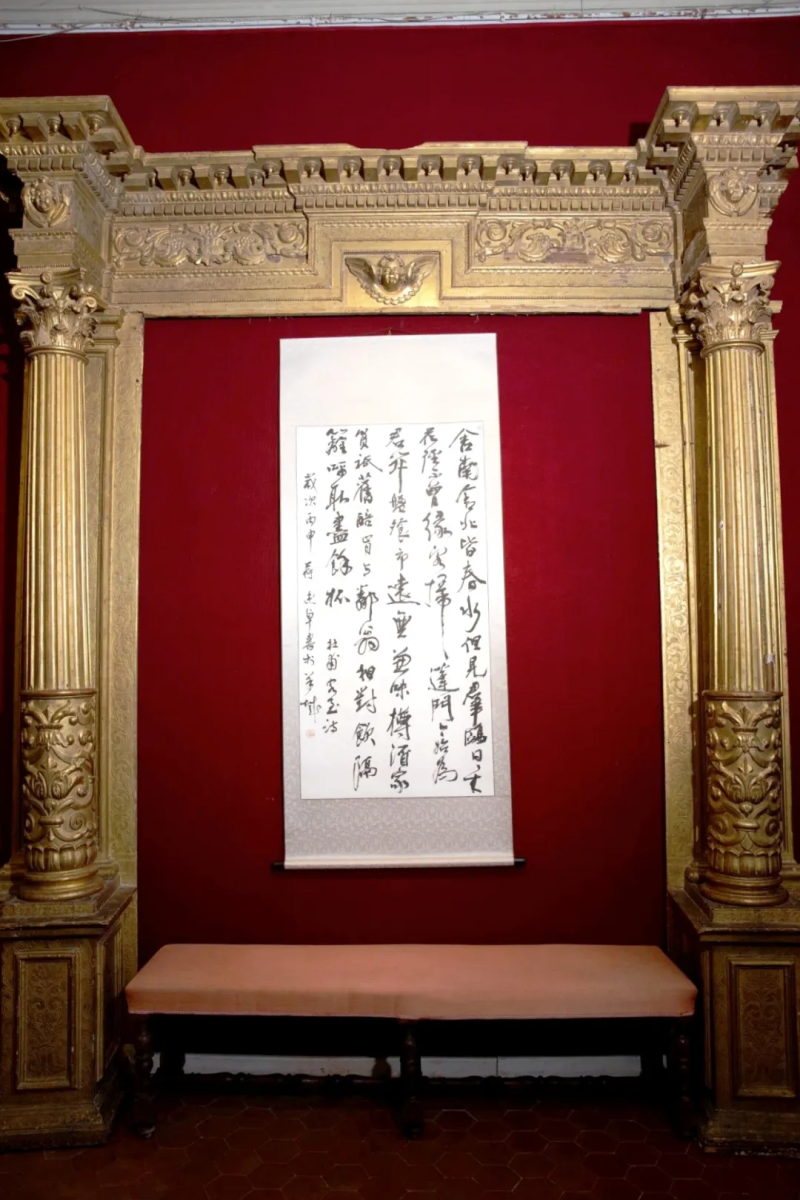 舍南舍北皆春水但見羣鷗日日来
花徑不曾緣客掃蓬門今始為
君開盤飧市遠無兼味樽酒家
貧祇舊醅肯與鄰翁相對飲隔
籬呼取盡餘杯 杜甫客至詩
歲次丙申荷